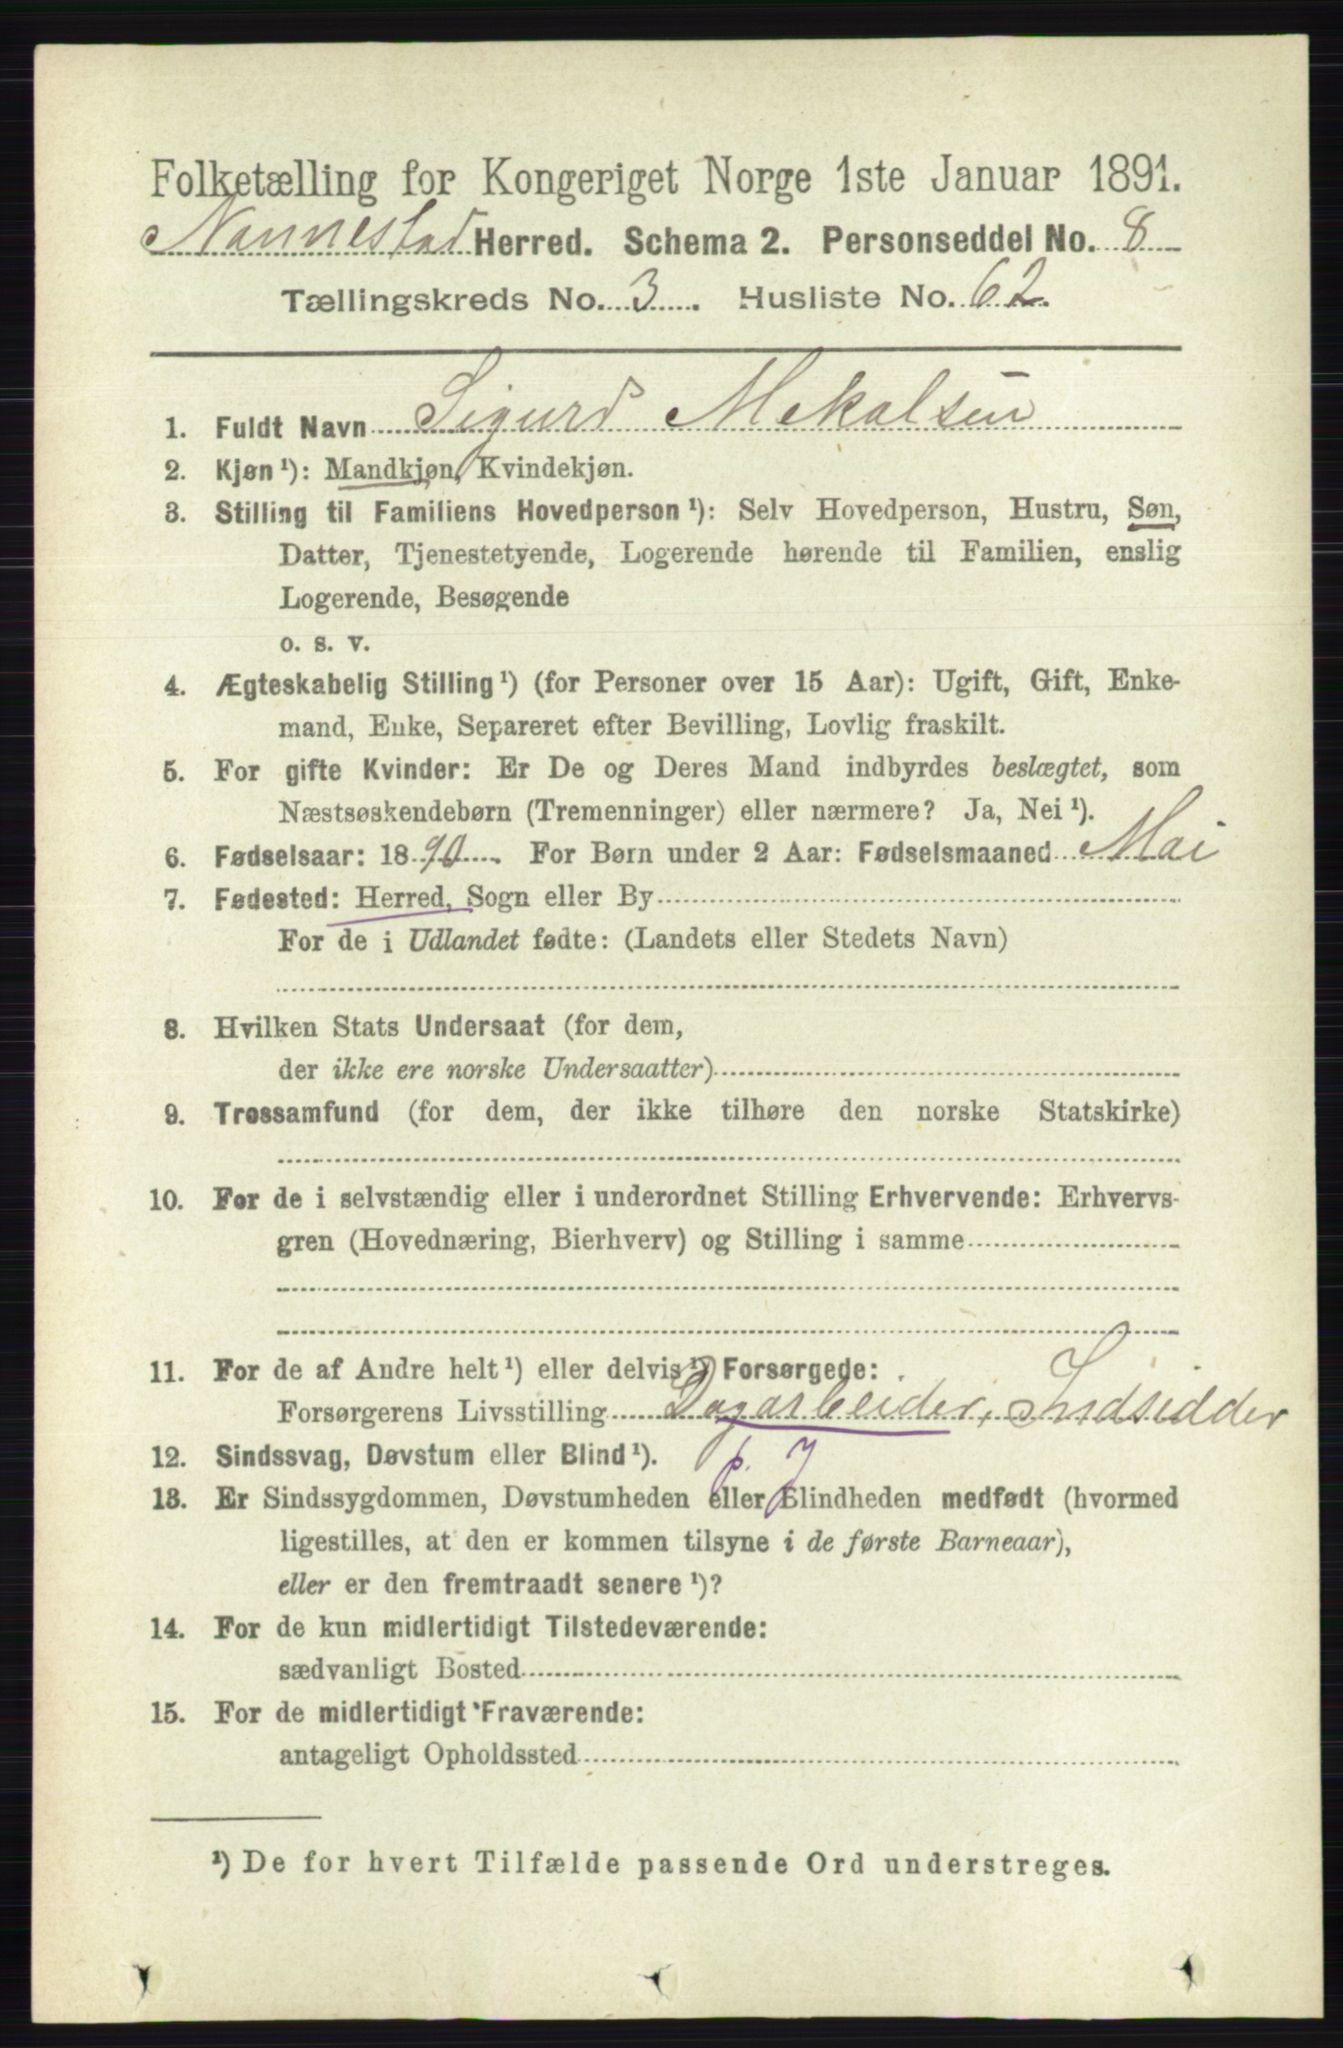 Folketælling for Kongeriget Norge 1ste Januar 1891.
Nannestad Herred. Schema 2. Personseddel No. 8
Tællingskreds No. 3. Husliste No. 62.
1. Fuldt Navn Sigurd Mekalsen
2. Kjøn¹): Mandkjøn, Kvindekjøn.
3. Stilling til Familiens Hovedperson¹): Selv Hovedperson, Hustru, Søn,
Datter, Tjenestetyende, Logerende hørende til Familien, enslig
Logerende, Besøgende
o. s. v.
4. Ægteskabelig Stilling¹) (for Personer over 15 Aar): Ugift, Gift, Enke-
mand, Enke, Separeret efter Bevilling, Lovlig fraskilt.
5. For gifte Kvinder: Er De og Deres Mand indbyrdes beslægtet, som
Næstsøskendebørn (Tremenninger) eller nærmere? Ja, Nei¹).
6. Fødselsaar: 1890. For Børn under 2 Aar: Fødselsmaaned Mai
7. Fødested: Herred, Sogn eller By
For de i Udlandet fødte: (Landets eller Stedets Navn)
8. Hvilken Stats Undersaat (for dem,
der ikke ere norske Undersaatter)
9. Trossamfund (for dem, der ikke tilhøre den norske Statskirke)
10. For de i selvstændig eller i underordnet Stilling Erhvervende: Erhvervs-
gren (Hovednæring, Bierhverv) og Stilling i samme
11. For de af Andre helt¹) eller delvis¹) Forsørgede:
Forsørgerens Livsstilling Dagarbeider, Indsidder
12. Sindssvag, Døvstum eller Blind¹).
13. Er Sindssygdommen, Døvstumheden eller Blindheden medfødt (hvormed
ligestilles, at den er kommen tilsyne i de første Barneaar),
eller er den fremtraadt senere¹)?
14. For de kun midlertidigt Tilstedeværende:
sædvanligt Bosted
15. For de midlertidigt Fraværende:
antageligt Opholdssted
¹) De for hvert Tilfælde passende Ord understreges.